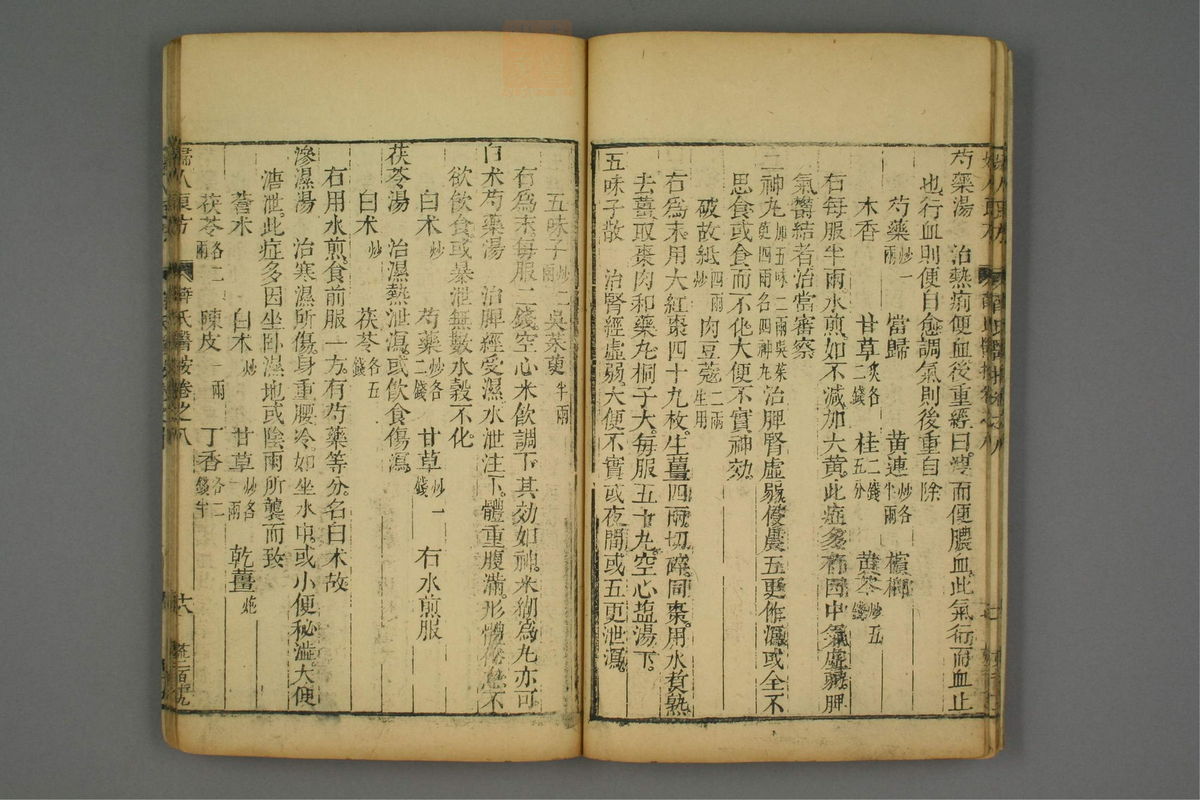 芍藥湯 治熱痢便血後重經曰溲而便膿血此氣行而血止
也行血則便自愈調氣則後重自除
芍藥炒一兩 當歸 黃連炒各半兩 檳榔
木香 甘草炙各二錢 桂二錢五分 黃芩炒五錢
右每服半兩水煎如不減加大黃此症多有因中氣虛弱脾
氣鬱結者治當審察
二神丸加五味二兩吳茱萸四兩名四神丸 治脾腎虛弱侵晨五更作瀉或全不
思食或食而不化大便不實神効
破故紙四兩炒 肉豆蔻二兩生用
右爲末用大紅棗四十九枚生薑四兩切碎同棗用水煑熟
去薑取棗肉和藥丸桐子大每服五十丸空心盐湯下
五味子散 治腎經虛弱大便不實或夜間或五更泄瀉
五味子炒二兩 吳茱萸半兩
右爲末每服二錢空心米飲調下其効如神米糊爲丸亦可
白术芍藥湯 治脾經受濕水泄注下體重腹滿形體倦怠不
欲飲食或暴泄無數水穀不化
白术炒 芍藥炒各二錢 甘草炒一錢 右水煎服
茯苓湯 治濕熱泄瀉或飲食傷瀉
白术炒 茯苓各五錢
右用水煎食前服一方有芍藥等分名白术散
滲濕湯 治寒濕所傷身重腰冷如坐水中或小便秘澁大便
溏泄此症多因坐卧濕地或陰雨所襲而致
蒼术 白术炒 甘草炒各一兩 乾薑炮
茯苓各二兩 陳皮一兩 丁香各二錢半
婦人良方 薛氏醫按卷之八